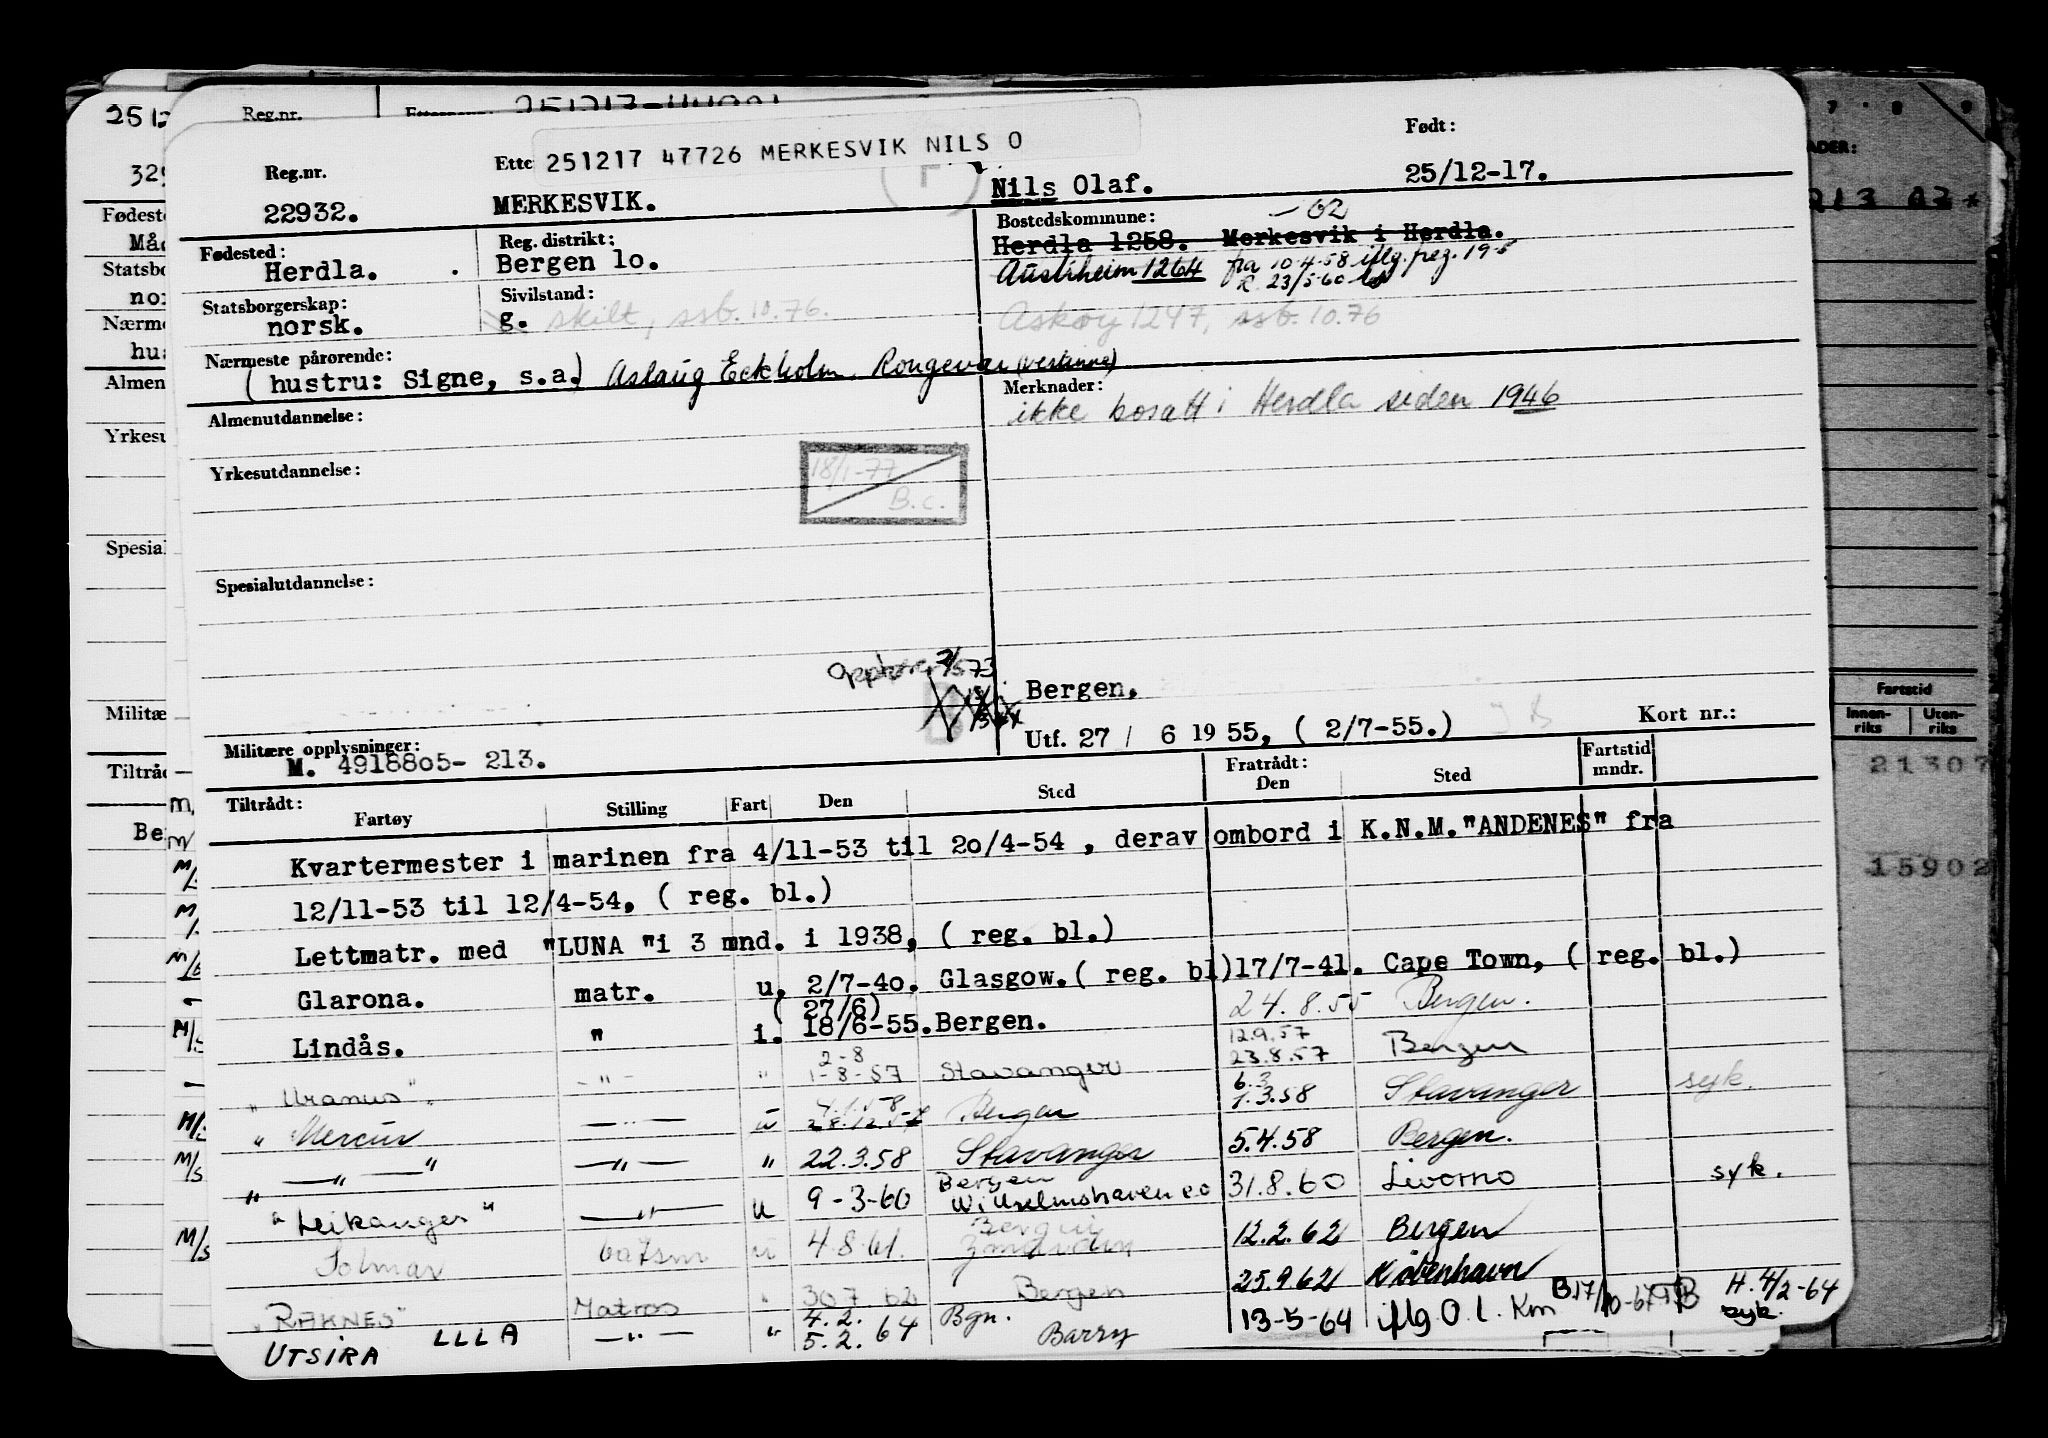 251217 47726 MERKESVIK NILS O
Reg.nr.
22932.
MERKESVIK.
Nils Olaf.
Født:
25/12-17.
Fødested:
Herdla.
Reg. distrikt:
Bergen lo.
Bostedskommune: -02
Herdla 1258. Merkesvik i Herdla.
Austrheim 1264 fra 10.4.58 iflg. 
R 23/5-60
Statsborgerskap:
norsk.
Sivilstand:
g. skilt, ssb. 10.76.
Askøy 1247, ssb. 10.76
Nærmeste pårørende:
(hustru: Signe, s.a.) Aslaug Eckholm, Rongevær (vestinne)
Almenutdannelse:
Merknader:
ikke bosatt i Herdla siden 1946
Yrkesutdannelse:
18/1-77
B.c.
Spesialutdannelse:
Bergen,
Utf. 27 / 6 1955, ( 2/7-55.)
Kort nr.:
Militære opplysninger:
M. 4918805- 213.
Tiltrådt:
Fartøy
Stilling
Fart
Den
Sted
Fratrådt:
Den
Sted
Fartstid
mndr.
Kvartermester i marinen fra 4/11-53 til 20/4-54 , derav ombord i K.N.M."ANDENES" fra
12/11-53 til 12/4-54, ( reg. bl.)
Lettmatr. med "LUNA "i 3 mnd. i 1938, ( reg. bl.)
Glarona. matr. u, 2/7-40. Glasgow.( reg. bl)17/7-41. Cape Town, ( reg. bl.)
( 27/6)
Lindås. " i. 18/6-55.Bergen. 24.8.55 Bergen.
2-8 12.9.57
"Uranus" -"- " 1-8-57 Stavanger 23.8.57 Bergen
6.3
"Mercur -"- u 28.12.57 Bergen 1.3.58 Stavanger syk.
" -"- " -"- " 22.3.58 Stavanger 5.4.58 Bergen.
Bergen
"Leikanger" -"- u 9-3-60 Wilhelmshaven 31.8.60 Livorno syk.
Bergen
Solmar båtsm u 4.8.61. 12.2.62 Bergen
"RAKNES" Matros " 30.7.62 Bergen 25.9.62 København
4.2. Bgn. H. 4/2-64
UTSIRA LLLA -"- " 5.2. 64 Barry 13-5-64 iflg O.l. Km B.17/10-67 syk.
Fartstid
Innen-
riks
Uten-
riks
21307
15902